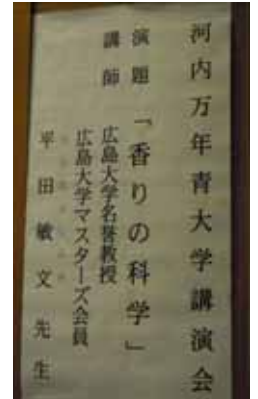 河内万年青大学講演会
演題「香りの科学」
講師 広島大学名誉教授
広島大学マスターズ会員
平田敏文先生